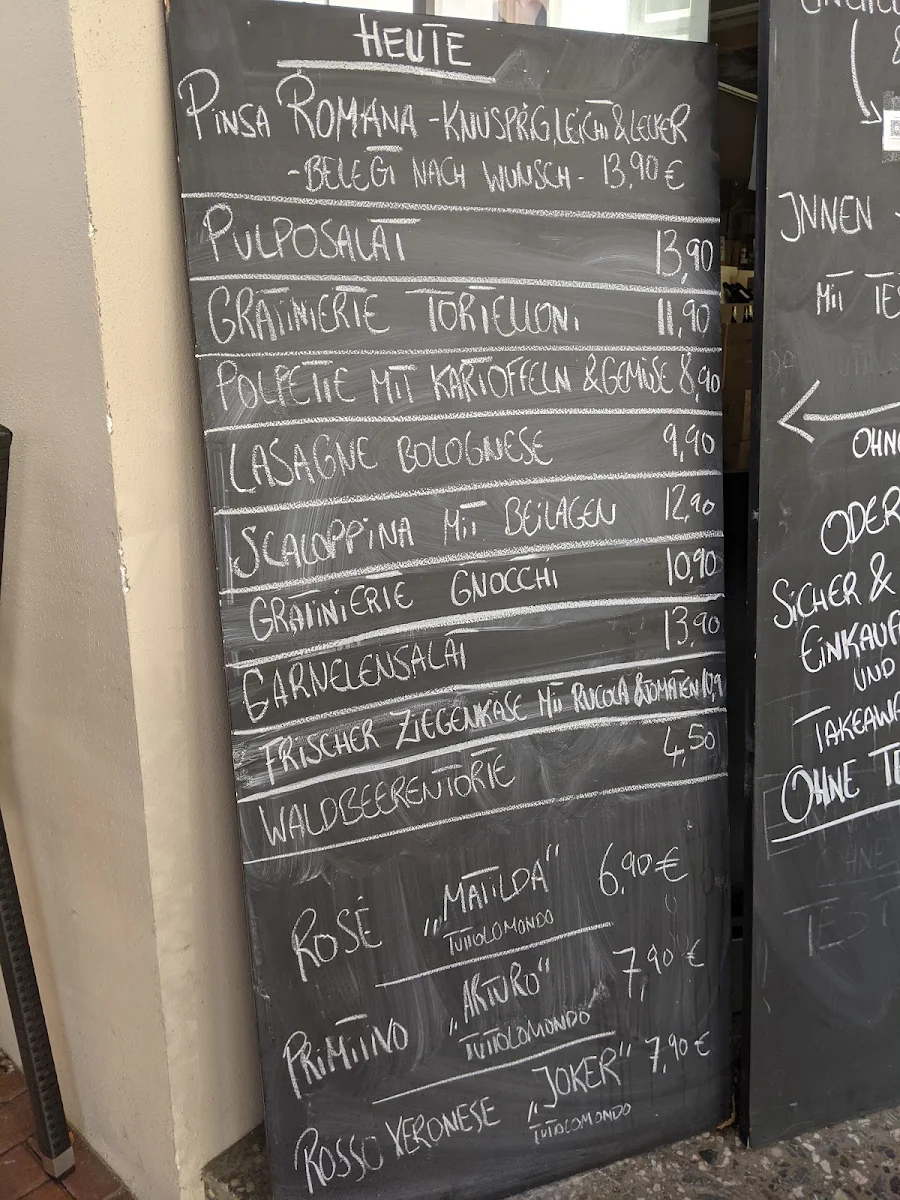 HEUTE
PINSA ROMANA - KNUSPRIG, LEICHT & LECKER
- BELEGT NACH WUNSCH - 13,90 €
PULPOSALAT 13,90
GRATINIERTE TORTELLONI 11,90
POLPETTE MIT KARTOFFELN & GEMÜSE 8,90
LASAGNE BOLOGNESE 9,90
SCALOPPINA MIT BEILAGEN 12,90
GRATINIERTE GNOCCHI 10,90
GARNELENSALAT 13,90
FRISCHER ZIEGENKÄSE MIT RUCOLA & TOMATEN 10,9
WALDBEERENTORTE 4,50
ROSÉ „MATILDA“ 6,90 €
TUTTOLOMONDO
PRIMITIVO „ARTURO“ 7,90 €
TUTTOLOMONDO
ROSSO VERONESE „JOKER“ 7,90 €
TUTTOLOMONDO
&
INNEN
MIT TES
OHNE
ODER
SICHER &
EINKAUF
UND
TAKEAWA
OHNE TE
OHNE
TEST